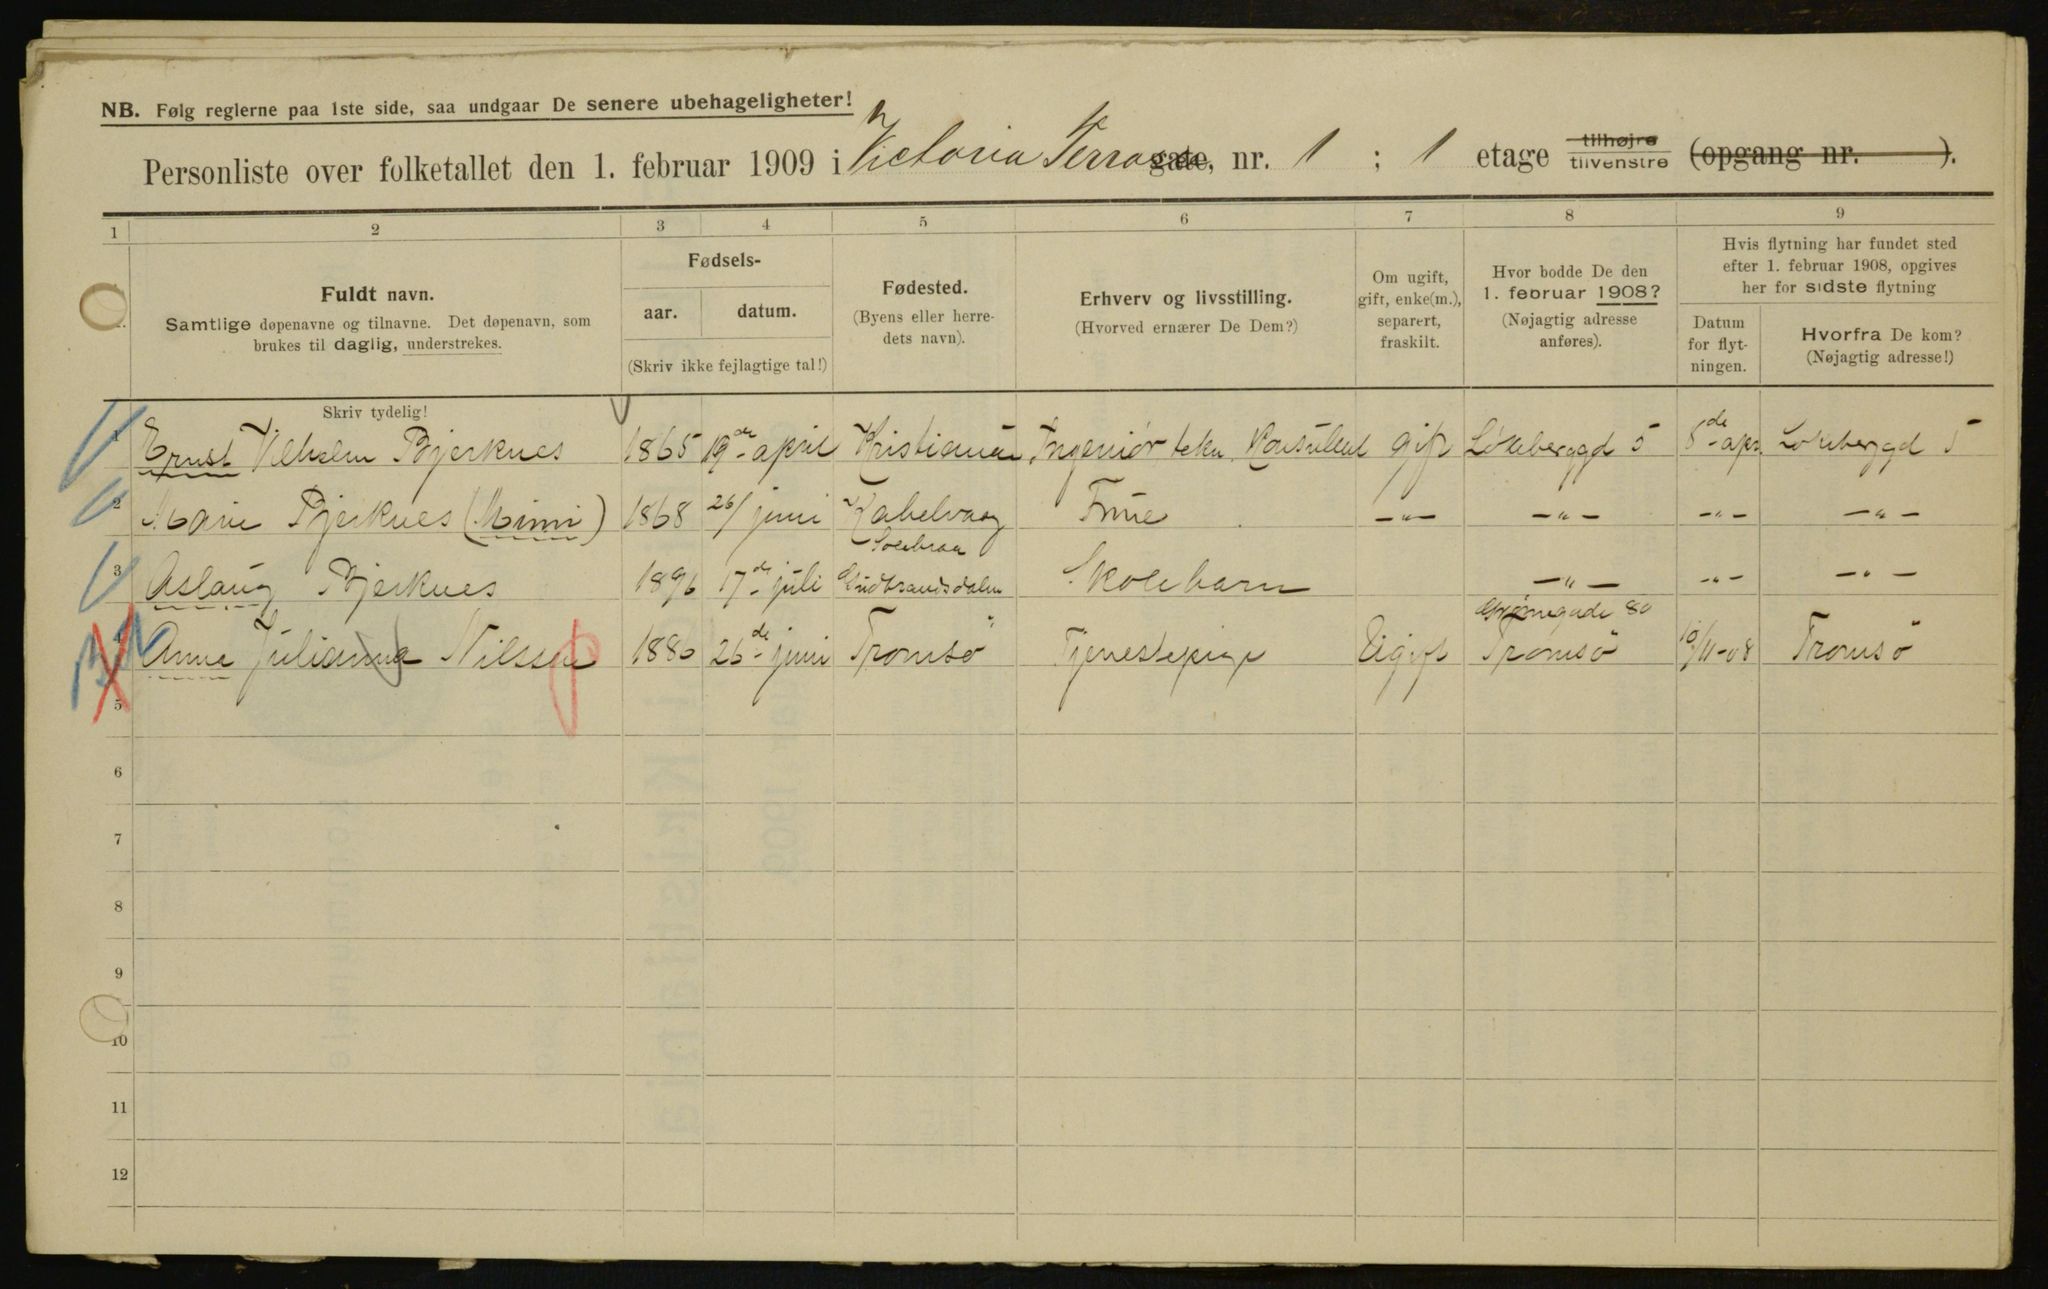 NB. Følg reglerne paa 1ste side, saa undgaar De senere ubehageligheter!
Personliste over folketallet den 1. februar 1909 i Victoria Terrasse gate, nr. 1 ; 1 etage tilhøjre tilvenstre (opgang nr. ).
1 2 3 4 5 6 7 8 9
Fuldt navn.
Samtlige døpenavne og tilnavne. Det døpenavn, som
brukes til daglig, understrekes.
Fødsels-
aar. datum.
(Skriv ikke fejlagtige tal!)
Fødested.
(Byens eller herre-
dets navn).
Erhverv og livsstilling.
(Hvorved ernærer De Dem?)
Om ugift,
gift, enke(m.),
separert,
fraskilt.
Hvor bodde De den
1. februar 1908?
(Nøjagtig adresse
anføres).
Hvis flytning har fundet sted
efter 1. februar 1908, opgives
her for sidste flytning
Datum
for flyt-
ningen.
Hvorfra De kom?
(Nøjagtig adresse!)
Skriv tydelig!
1 Ernst Vilhelm Bjerknes 1865 19de april Kristiania Ingeniør tekn. Konsulent gift Løkkebergd 5 5de apr. Løkkebergd 5
2 Marie Bjerknes (Mimi) 1868 26/ juni Kabelvaag Frue -"- -"- -"- -"-
3 Aslaug Bjerknes 1896 17de juli Gudbrandsdalen Skolebarn -"- -"- -"-
Grønnegade 80
4 Anna Julianna Nilssen 1886 26de juni Tromsø Tjenestepige Ugift Tromsø 10/11-08 Tromsø
5
6
7
8
9
10
11
12